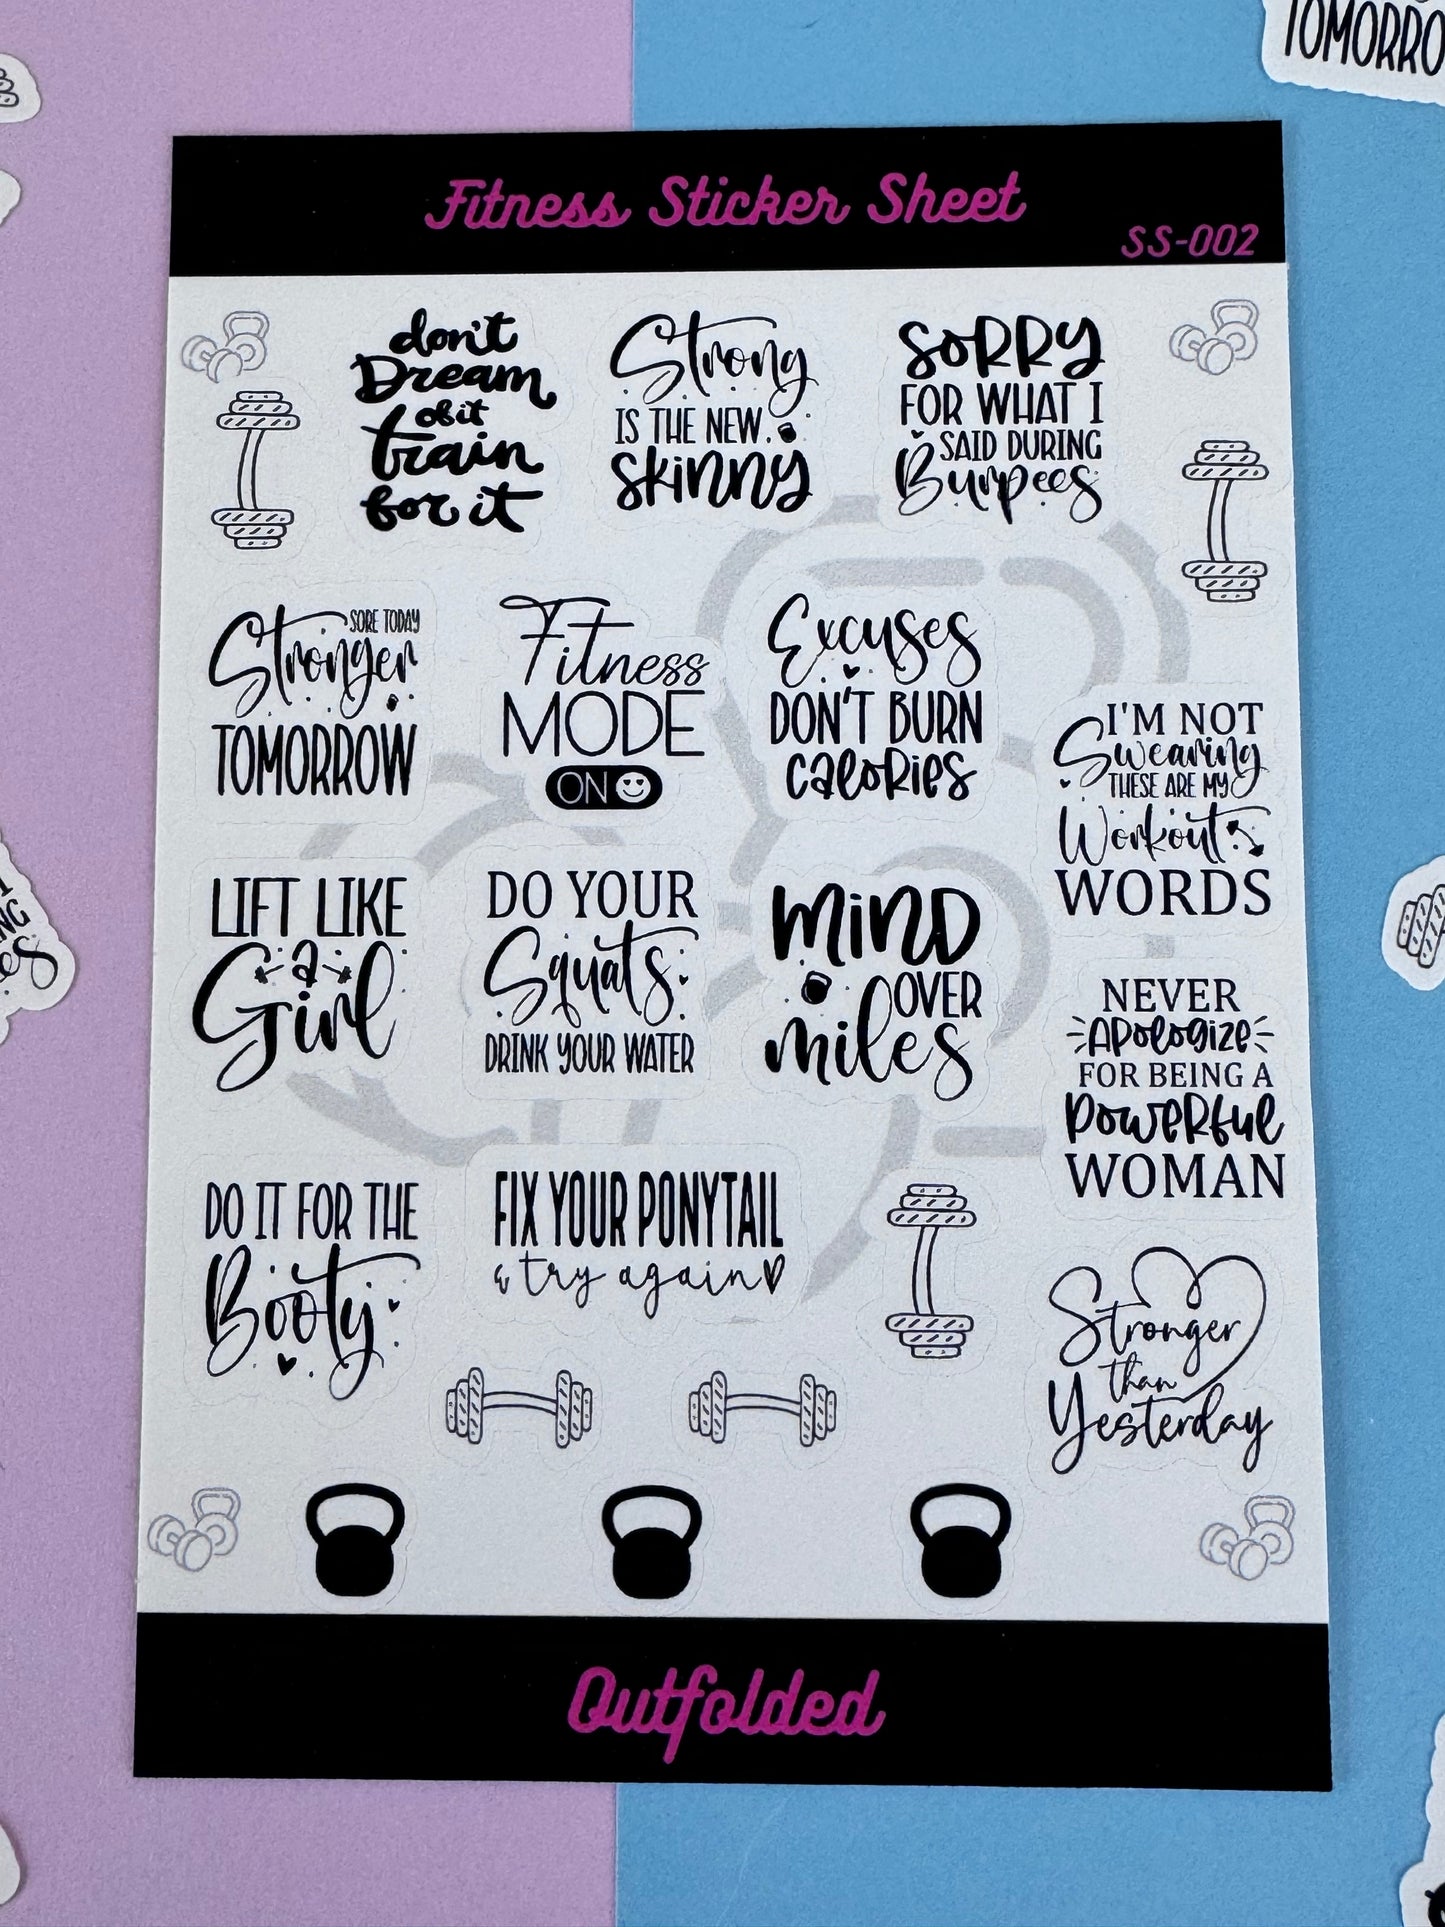 TOMORRO
Fitness Sticker Sheet
SS-002
don't
Dream
of it
train
for it
Strong
IS THE NEW
skinny
SORRY
FOR WHAT I
SAID DURING
Burpees
SORE TODAY
Stronger
TOMORROW
Fitness
MODE
ON
Excuses
DON'T BURN
calories
I'M NOT
Swearing
THESE ARE MY
Workout
WORDS
LIFT LIKE
a
Girl
DO YOUR
Squats
DRINK YOUR WATER
MIND
OVER
miles
NEVER
Apologize
FOR BEING A
Powerful
WOMAN
DO IT FOR THE
Booty
FIX YOUR PONYTAIL
& try again
Stronger
than
Yesterday
Outfolded